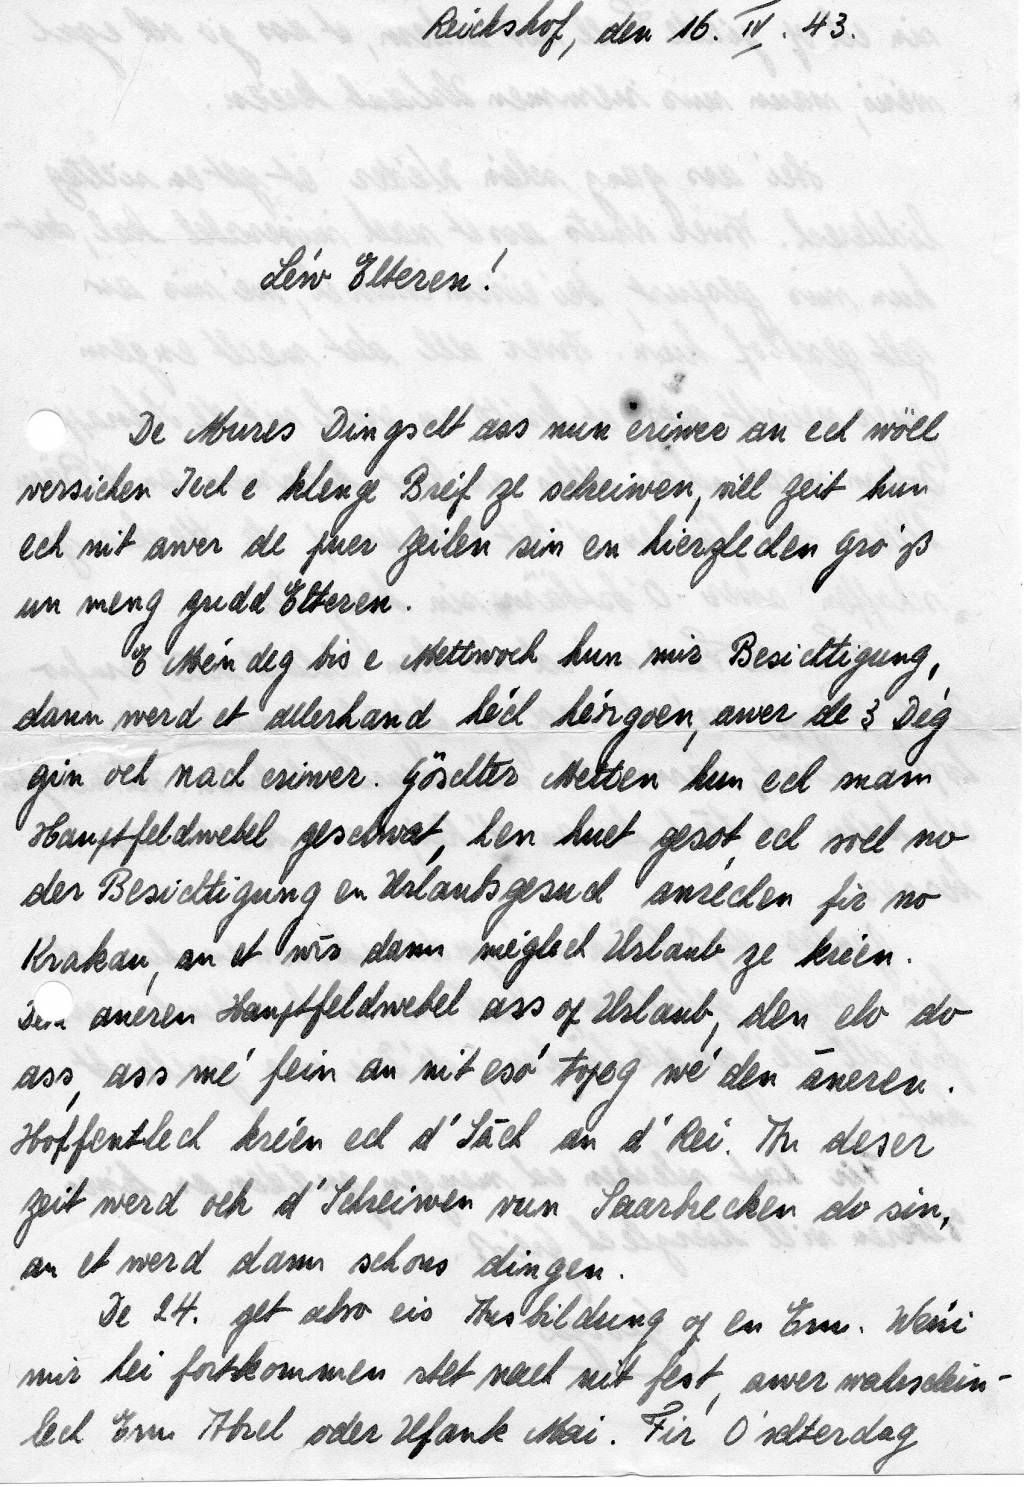 Reichshof, den 16. IV. 43.
Léiw Elteren!
De Mures Dingscht ass nun eriwer an ech wöll
versichen Iech e klenge Bréif ze schreiwen, vill Zeit hun
ech nit awer de puer Zeilen sin en hierzlechen Gro'ß
un meng gudd Elteren.
E Méindeg bis e Mettwoch hun mir Besichtigung,
dann werd et allerhand héch hiergoen, awer de 3 Dég
gin och nach eriwer. Göschter Metten hun ech mam
Hauptfeldwebel geschwat, hen huet gesot, ech soll no
der Besichtigung en Urlaubsgesuch anréchen fir no
Krakau, an et wīs dann méiglech Urlaub ze kréien.
Den aneren Hauptfeldwebel ass op Urlaub, den elo do
ass, ass mé fein an nit esó topeg wé den āneren.
Hoffentlech kréien ech d'Sāch an d'Rei. An deser
Zeit werd och d'Schreiwen vun Saarbrecken do sin,
an et werd dann schons dingen.
De 24. get also eis Ausbildung op en Enn. Wéini
mir hei fortkommen stet nach nit fest, awer wahrschein-
lech Enn Abrel oder Ufank Mai. Fir O'schterdag